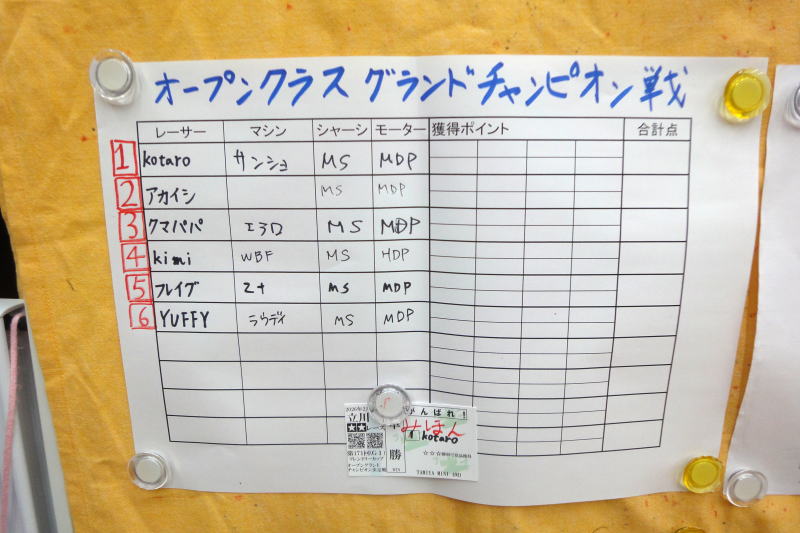 オープンクラス グランドチャンピオン戦
レーサー マシン シャーシ モーター 獲得ポイント 合計点
1 kotaro サンショ MS MDP
2 アカイシ MS MDP
3 クマパパ エヨロ MS MDP
4 kimi WBF MS HDP
5 フレイグ Z+ MS MDP
6 YUFFY らうディ MS MDP
がんばれ!
立川
みほん
kotaro
勝
オープングランド
TAMIYA MINI 4WD